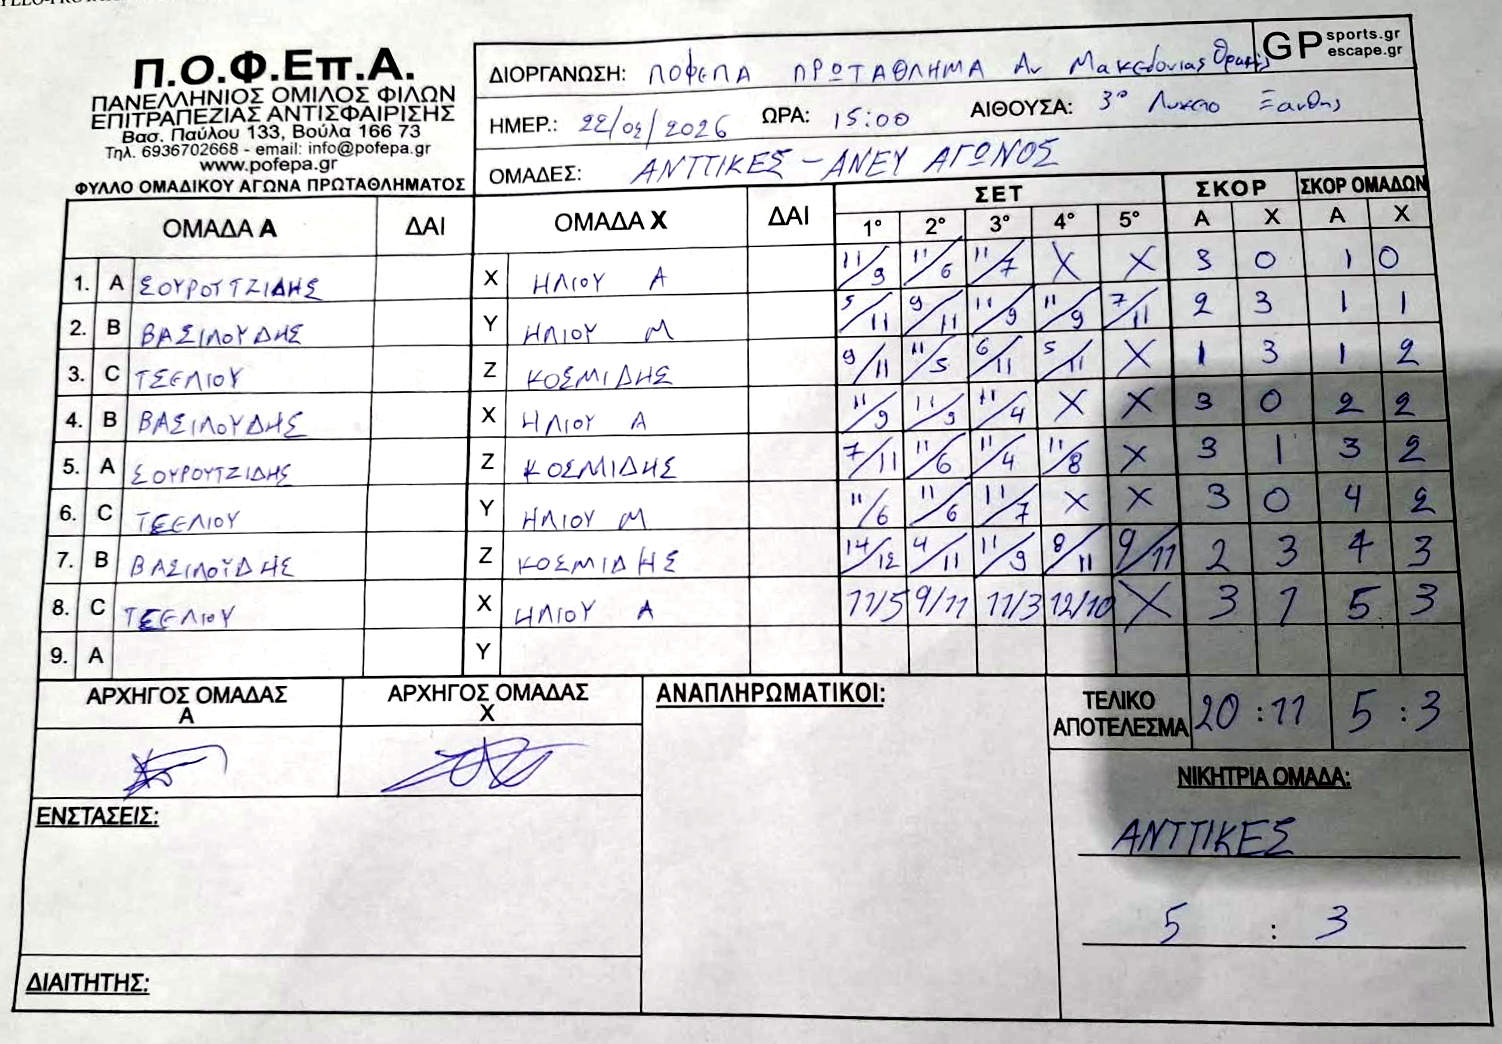 Π.Ο.Φ.Επ.Α.
ΠΑΝΕΛΛΗΝΙΟΣ ΟΜΙΛΟΣ ΦΙΛΩΝ
ΕΠΙΤΡΑΠΕΖΙΑΣ ΑΝΤΙΣΦΑΙΡΙΣΗΣ
Βασ. Παύλου 133, Βούλα 166 73
Τηλ. 6936702668 - email: info@pofepa.gr
www.pofepa.gr
ΦΥΛΛΟ ΟΜΑΔΙΚΟΥ ΑΓΩΝΑ ΠΡΩΤΑΘΛΗΜΑΤΟΣ
ΔΙΟΡΓΑΝΩΣΗ: ΠΟΦΕΠΑ ΠΡΩΤΑΘΛΗΜΑ Αν Μακεδονιας Θρακης
GP sports.gr
escape.gr
ΗΜΕΡ.: 22/02/2026 ΩΡΑ: 15:00 ΑΙΘΟΥΣΑ: 3ο Λυκειο Ξανθης
ΟΜΑΔΕΣ: ΑΝΤΤΙΚΕΣ - ΑΝΕΥ ΑΓΩΝΟΣ
ΟΜΑΔΑ Α ΔΑΙ ΟΜΑΔΑ Χ ΔΑΙ ΣΕΤ ΣΚΟΡ ΣΚΟΡ ΟΜΑΔΩΝ
1° 2° 3° 4° 5° Α Χ Α Χ
1. A ΣΟΥΡΟΥΤΖΙΔΗΣ X ΗΛΙΟΥ Α 11/9 11/6 11/7 X X 3 0 1 0
2. B ΒΑΣΙΛΟΥΔΗΣ Y ΗΛΙΟΥ Μ 5/11 9/11 11/9 11/9 7/11 2 3 1 1
3. C ΤΣΕΛΙΟΥ Z ΚΟΣΜΙΔΗΣ 9/11 11/5 6/11 5/11 X 1 3 1 2
4. B ΒΑΣΙΛΟΥΔΗΣ X ΗΛΙΟΥ Α 11/9 11/9 11/4 X X 3 0 2 2
5. A ΣΟΥΡΟΥΤΖΙΔΗΣ Z ΚΟΣΜΙΔΗΣ 7/11 11/6 11/4 11/8 X 3 1 3 2
6. C ΤΣΕΛΙΟΥ Y ΗΛΙΟΥ Μ 11/6 11/6 11/7 X X 3 0 4 2
7. B ΒΑΣΙΛΟΥΔΗΣ Z ΚΟΣΜΙΔΗΣ 14/12 4/11 11/9 8/11 9/11 2 3 4 3
8. C ΤΣΕΛΙΟΥ X ΗΛΙΟΥ Α 11/5 9/11 11/3 12/10 X 3 1 5 3
9. A Y
ΑΡΧΗΓΟΣ ΟΜΑΔΑΣ Α
ΑΡΧΗΓΟΣ ΟΜΑΔΑΣ Χ
ΑΝΑΠΛΗΡΩΜΑΤΙΚΟΙ:
ΤΕΛΙΚΟ ΑΠΟΤΕΛΕΣΜΑ 20 : 11 5 : 3
ΝΙΚΗΤΡΙΑ ΟΜΑΔΑ:
ΑΝΤΤΙΚΕΣ
5 : 3
ΕΝΣΤΑΣΕΙΣ:
ΔΙΑΙΤΗΤΗΣ: